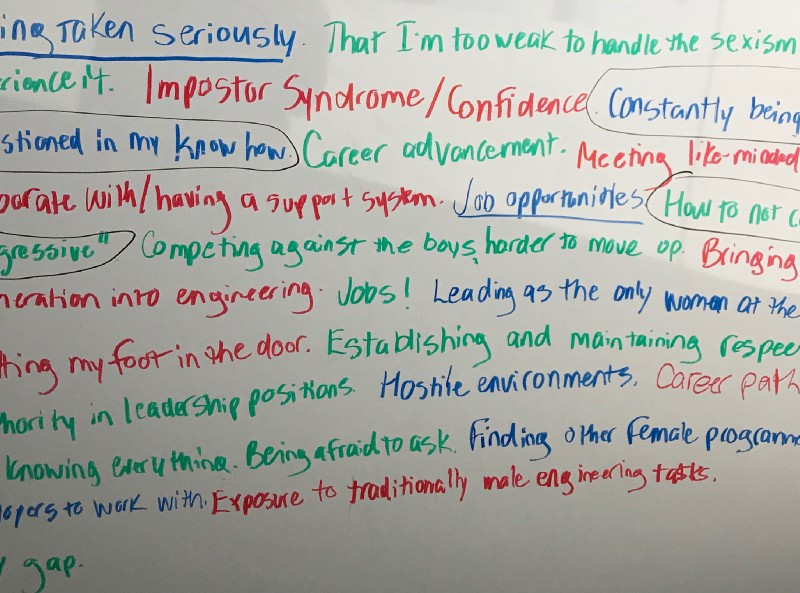 ing Taken seriously. That I'm too weak to handle the sexism
rience it. Impostor Syndrome/Confidence. Constantly being
stioned in my know how. Career advancement. Meeting like-minded
orate with/having a support system. Job opportunities. How to not c
gressive" Competing against the boys, harder to move up. Bringing
neration into engineering. Jobs! Leading as the only woman at the
tting my foot in the door. Establishing and maintaining respec
hority in leadership positions. Hostile environments. Career path
knowing everything. Being afraid to ask. Finding other female programm
lopers to work with. Exposure to traditionally male engineering tasks.
y gap.